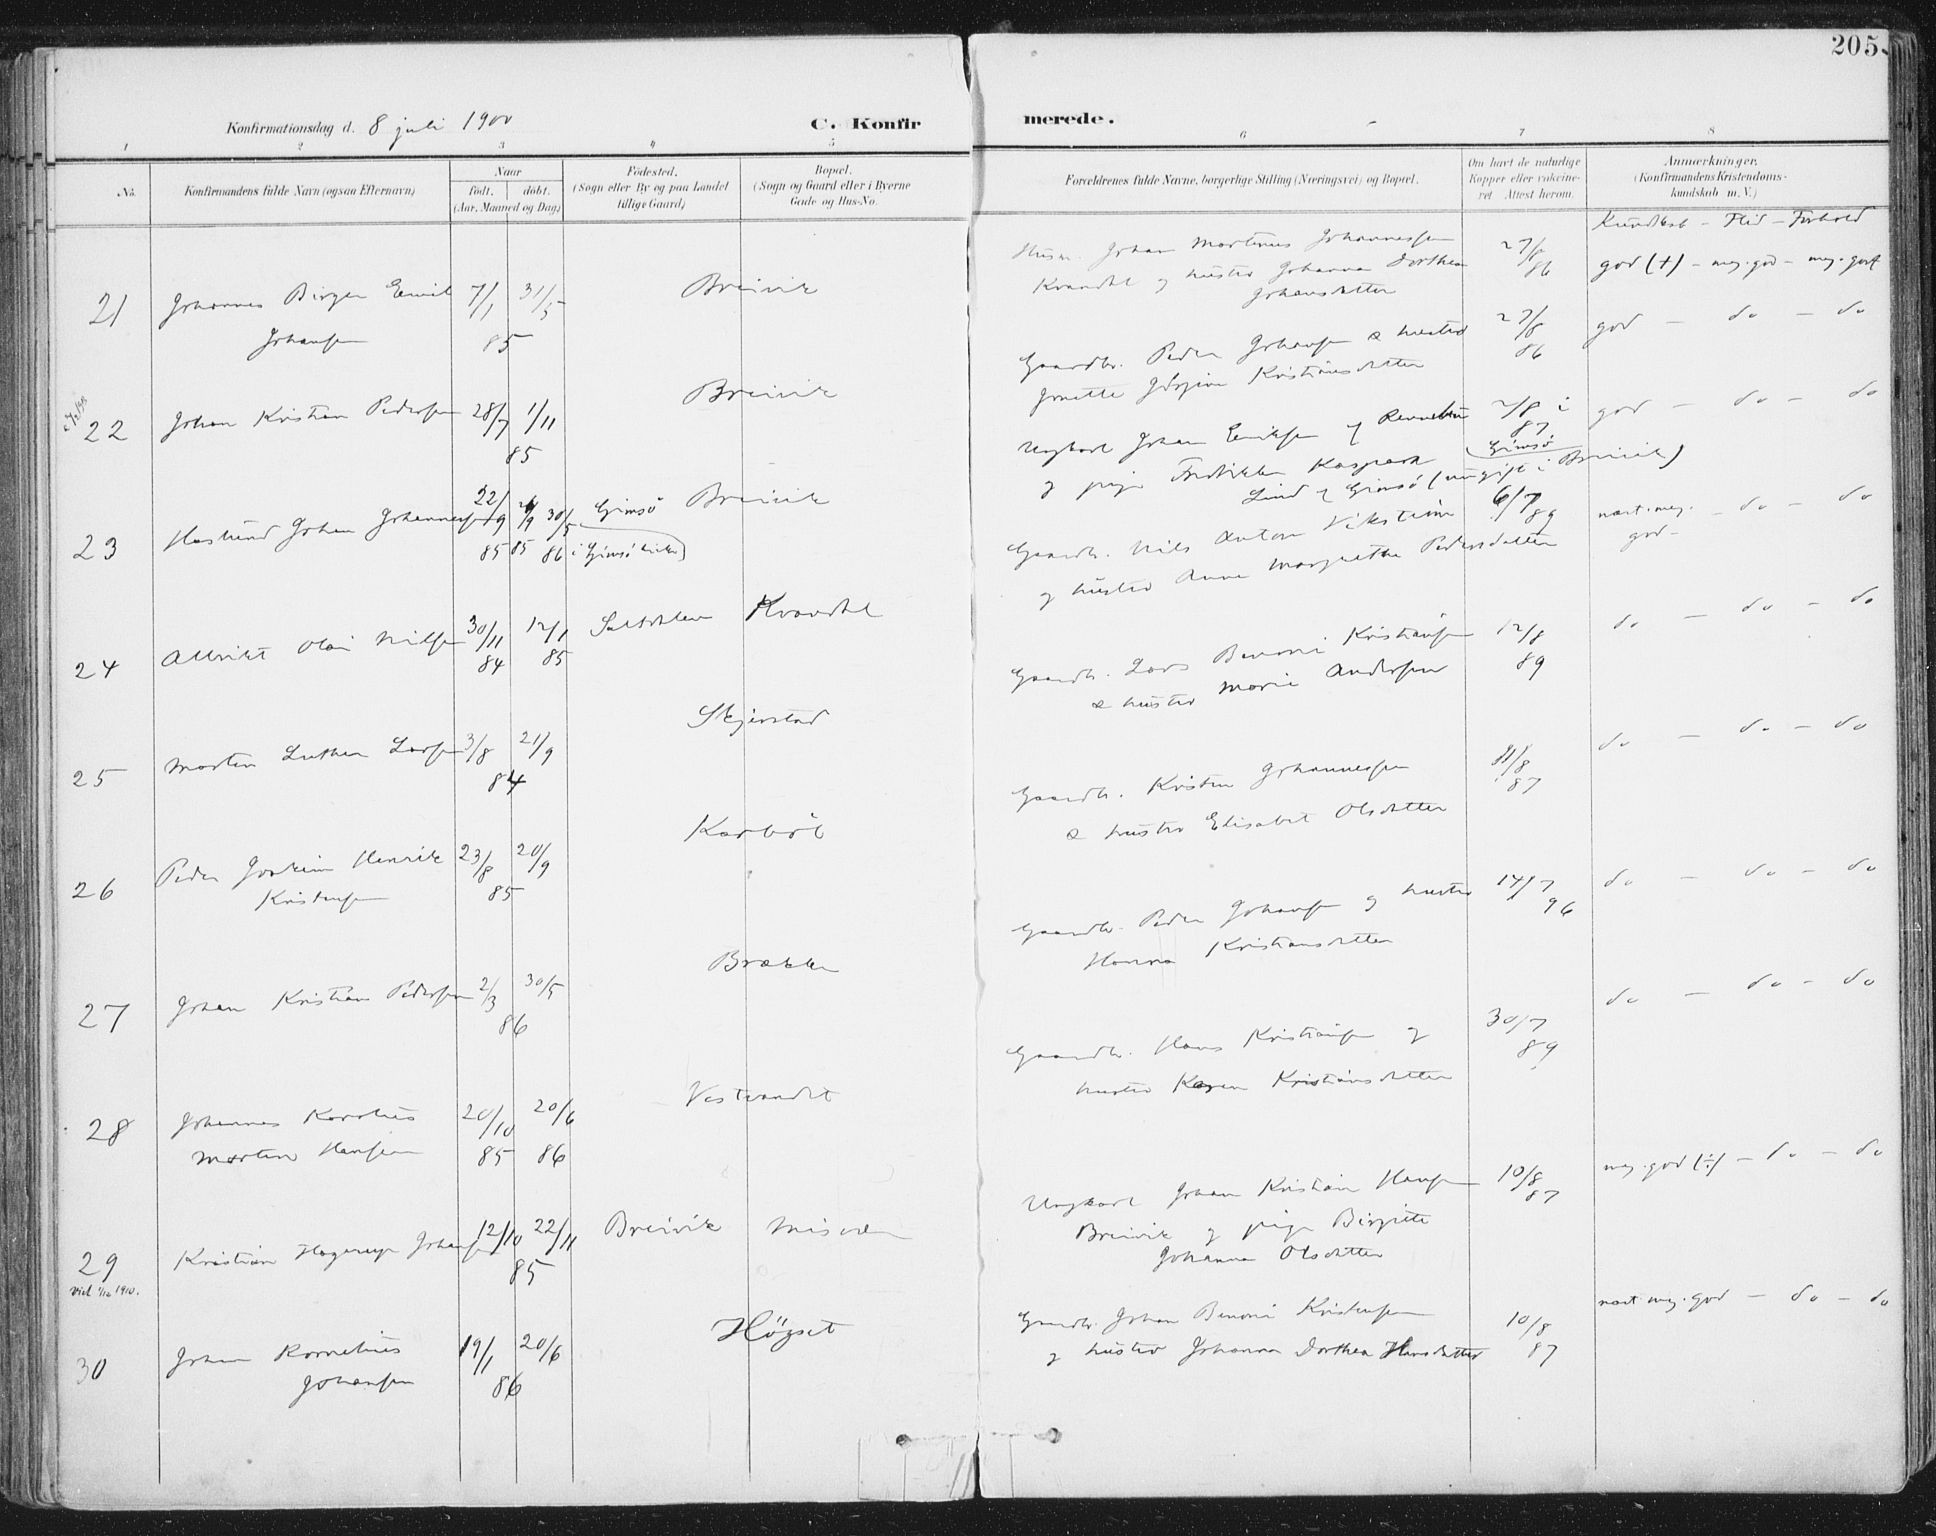 205.
Konfirmationsdag d. 8 juli 1900
C. Konfirmerede.
1 2 3 4 5 6 7 8
No.
Konfirmandens fulde Navn (ogsaa Efternavn)
Naar
født. døbt.
(Aar, Maaned og Dag)
Fødested.
(Sogn eller By og paa Landet
tillige Gaard)
Bopæl.
(Sogn og Gaard eller i Byerne
Gade og Hus-No.
Forældrenes fulde Navne, borgerlige Stilling (Næringsvei) og Bopæl.
Om havt de naturlige
Kopper eller vakcine-
ret Attest herom.
Anmærkninger.
(Konfirmandens Kristendoms-
kundskab m. V.)
Kundskab - Flid - Forhold
21 Johannes Birger Emil
Johansen
7/1 31/5
85
Breivik
Husm. Johan Martinus Johannessen
Kvandal og hustru Johanna Dorthea
Johansdatter
27/8
86
god (+) - meg. god - meg. godt
22 Johan Kristian Pedersen
28/7 1/11
85
Breivik
Gaardbr. Peder Johansen & hustru
Kristiansdatter
27/8
86
god - do - do
23 Johan Johannessen
22/9 30/5
85 85 86
Gimsø
(i Gimsø kirke)
Breivik
Ungkarl Johan
og pige Kaspara
Lind af Gimsø (ungift i Breivik)
2/8 i
87
Gimsø
god - do - do
24 Albrikt Olai Nilsen
30/11 12/1
84 85
Saltdalen Kvandal
Gaardbr. Nils Anton
og hustru Anne Margrethe Pedersdatter
6/7
89
nært. meg.
god - do - do
25 Morten Luther Larsen
3/8 21/9
84
Skjerstad
Gaardbr. Lars Benoni Kristiansen
& hustru Marie Andersen
12/8
89
do - do - do
26 Peder Joakim Henrik
Kristensen
23/8 20/9
85
Karbøl
Gaardbr. Kristen Johannessen
& hustru Elisabet Olsdatter
11/8
87
do - do - do
27 Johan Kristian Pedersen
2/3 30/5
86
Brække
Gaardbr. Peder Johansen og hustru
Hanna Kristiansdatter
14/7
96
do - do - do
28 Johannes Kornelius
Morten Hansen
20/10 20/6
85 86
Vestvandet
Gaardbr. Hans Kristiansen og
hustru Karen Kristiansdatter
30/7
89
do - do - do
29 Kristian Johansen
viet 1/12 1910.
12/10 22/11
85
Breivik Misvær
Ungkarl Johan Kristian Hansen
Breivik og pige Birgitte
Johanna Olsdatter
10/8
87
meg. god (÷) - do - do
30 Johan Kornelius
Johansen
19/1 20/6
86
Högset
Gaardbr. Johan Benoni Kristensen
og hustru Johanna Dorthea Hansdatter
10/8
87
nært. meg. god - do - do